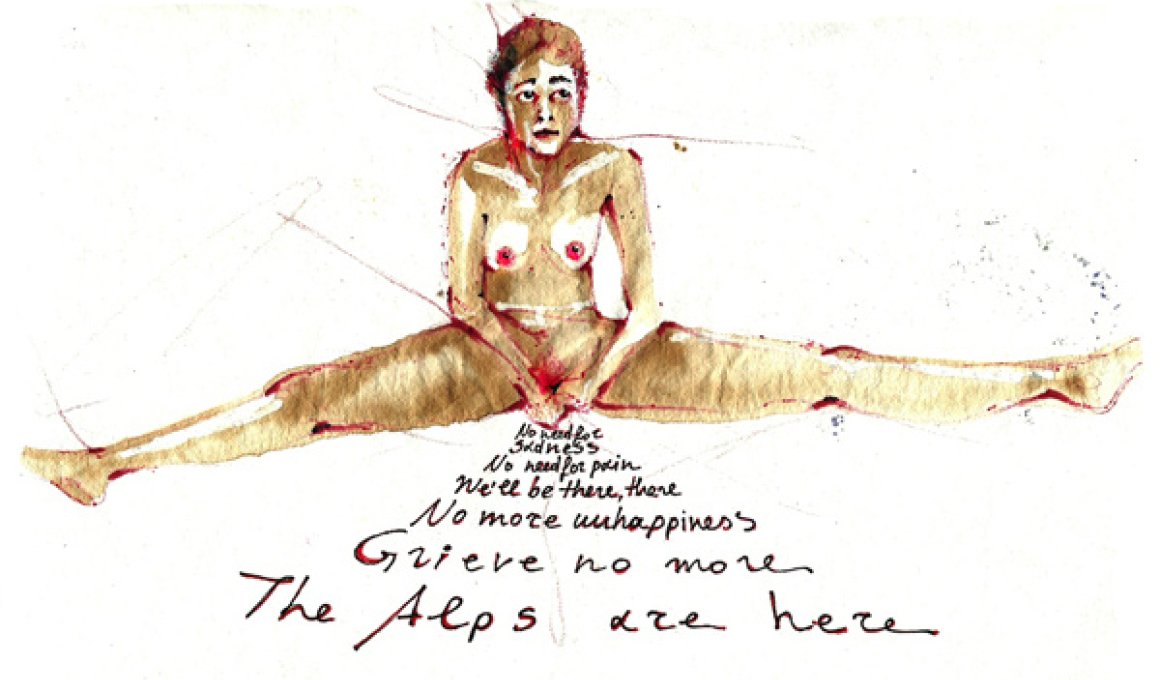 No need for
sadness
No need for pain
We'll be there, there
No more unhappiness
Grieve no more
The Alps are here